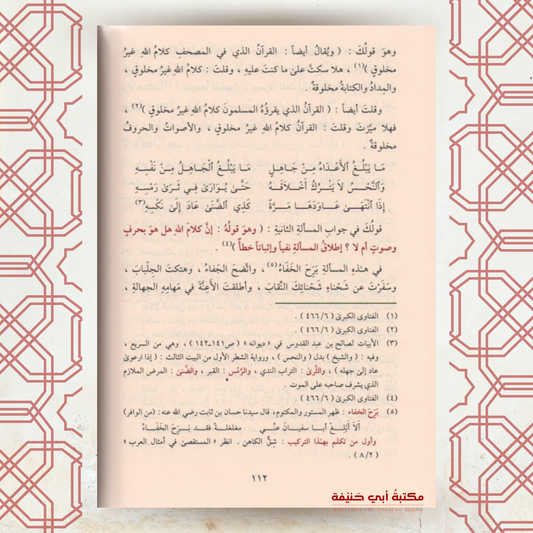 وهوَ قولُكَ : ( ويُقالُ أيضاً : القرآنُ الذي في المصحفِ كلامُ اللهِ غيرُ
مخلوقٍ )(١) ، هلا سكتَّ علىٰ ما كنتَ عليهِ ، وقلتَ : كلامُ اللهِ غيرُ مخلوقٍ ،
والمِدادُ والكتابةُ مخلوقةٌ .
وقلتَ أيضاً : ( القرآنُ الذي يقرؤُهُ المسلمونَ كلامُ اللهِ غيرُ مخلوقٍ )(٢) ،
فهلا ميَّزتَ وقلتَ : القرآنُ كلامُ اللهِ غيرُ مخلوقٍ ، والأصواتُ والحروفُ
مخلوقةٌ .
مَا يَبْلُغُ ٱلأَعْدَاءُ مِنْ جَاهِلٍ مَا يَبْلُغُ ٱلْجَاهِلُ مِنْ نَفْسِهِ
وَٱلنَّحْسُ لَا يَتْرُكُ أَخْلَاقَهُ حَتَّىٰ يُوَارَىٰ فِي ثَرَىٰ رَمْسِهِ
إِذَا ٱنْتَهَىٰ عَاوَدَهَا مَرَّةً كَذِي ٱلضَّنَىٰ عَادَ إِلَىٰ نَكْسِهِ(٣)
قولُكَ في جوابِ المسألةِ الثانيةِ : ( وهوَ قولُهُ : إنَّ كلامَ اللهِ هل هوَ بحرفٍ
وصوتٍ أم لا ؟ إطلاقُ المسألةِ نفياً وإثباتاً خطأٌ )(٤) .
في هٰذهِ المسألةِ بَرِحَ الخَفَاءُ(٥) ، واتضحَ الجَفاءُ ، وهتكتَ الجِلْبابَ ،
وسَفَرْتَ عن شَحْناءِ شَحْنائِكَ النِّقابَ ، وأطلقتَ الأَعِنَّةَ في مَهامِهِ الجهالةِ ،
(١) الفتاوى الكبرىٰ ( ٤٦٦/٦ ) .
(٢) الفتاوى الكبرىٰ ( ٤٦٦/٦ ) .
(٣) الأبيات لصالح بن عبد القدوس في « ديوانه » ( ص١٤١-١٤٢ ) ، وهي من السريع ،
وفيه : ( والشيخ ) بدل ( والنحس ) ، ورواية الشطر الأول من البيت الثالث : ( إذا ارعوىٰ
عاد إلىٰ جهله ) ، والثَّرىٰ : التراب الندي ، والرَّمْس : القبر ، والضَّنىٰ : المرض الملازم
الذي يشرف صاحبه على الموت .
(٤) الفتاوى الكبرىٰ ( ٤٦٦/٦ ) .
(٥) بَرِحَ الخفاء : ظهر المستور والمكتوم، قال سيدنا حسان بن ثابت رضي الله عنه : (من الوافر)
أَلَا أَبْلِغْ أَبَا سفيانَ عنِّي مغلغلةً فقد بَرِحَ الخَفَاءُ
وأول من تكلم بهٰذا التركيب : شِقٌّ الكاهن . انظر « المستقصىٰ في أمثال العرب »
( ٨/٢ ) .
١١٢
مكتبة أبي حَنيفة